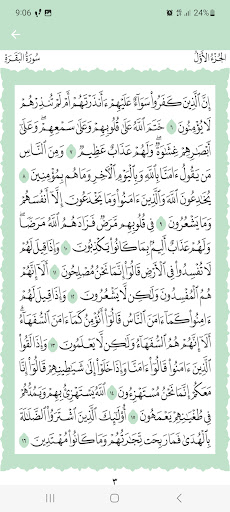 9:06 24%
سُورَةُ البَقَرَةِ الجُزْءُ الأَوَّلُ
إِنَّ ٱلَّذِينَ كَفَرُوا۟ سَوَآءٌ عَلَيْهِمْ ءَأَنذَرْتَهُمْ أَمْ لَمْ تُنذِرْهُمْ
لَا يُؤْمِنُونَ ٦ خَتَمَ ٱللَّهُ عَلَىٰ قُلُوبِهِمْ وَعَلَىٰ سَمْعِهِمْ ۖ وَعَلَىٰٓ
أَبْصَٰرِهِمْ غِشَٰوَةٌ ۖ وَلَهُمْ عَذَابٌ عَظِيمٌ ٧ وَمِنَ ٱلنَّاسِ
مَن يَقُولُ ءَامَنَّا بِٱللَّهِ وَبِٱلْيَوْمِ ٱلْءَاخِرِ وَمَا هُم بِمُؤْمِنِينَ ٨
يُخَٰدِعُونَ ٱللَّهَ وَٱلَّذِينَ ءَامَنُوا۟ وَمَا يَخْدَعُونَ إِلَّآ أَنفُسَهُمْ
وَمَا يَشْعُرُونَ ٩ فِى قُلُوبِهِم مَّرَضٌ فَزَادَهُمُ ٱللَّهُ مَرَضًا ۖ
وَلَهُمْ عَذَابٌ أَلِيمٌۢ بِمَا كَانُوا۟ يَكْذِبُونَ ١٠ وَإِذَا قِيلَ لَهُمْ
لَا تُفْسِدُوا۟ فِى ٱلْأَرْضِ قَالُوٓا۟ إِنَّمَا نَحْنُ مُصْلِحُونَ ١١ أَلَآ إِنَّهُمْ
هُمُ ٱلْمُفْسِدُونَ وَلَٰكِن لَّا يَشْعُرُونَ ١٢ وَإِذَا قِيلَ لَهُمْ
ءَامِنُوا۟ كَمَآ ءَامَنَ ٱلنَّاسُ قَالُوٓا۟ أَنُؤْمِنُ كَمَآ ءَامَنَ ٱلسُّفَهَآءُ ۗ أَلَآ
إِنَّهُمْ هُمُ ٱلسُّفَهَآءُ وَلَٰكِن لَّا يَعْلَمُونَ ١٣ وَإِذَا لَقُوا۟
ٱلَّذِينَ ءَامَنُوا۟ قَالُوٓا۟ ءَامَنَّا وَإِذَا خَلَوْا۟ إِلَىٰ شَيَٰطِينِهِمْ قَالُوٓا۟ إِنَّا
مَعَكُمْ إِنَّمَا نَحْنُ مُسْتَهْزِءُونَ ١٤ ٱللَّهُ يَسْتَهْزِئُ بِهِمْ وَيَمُدُّهُمْ
فِى طُغْيَٰنِهِمْ يَعْمَهُونَ ١٥ أُو۟لَٰٓئِكَ ٱلَّذِينَ ٱشْتَرَوُا۟ ٱلضَّلَٰلَةَ
بِٱلْهُدَىٰ فَمَا رَبِحَت تِّجَٰرَتُهُمْ وَمَا كَانُوا۟ مُهْتَدِينَ ١٦
٣